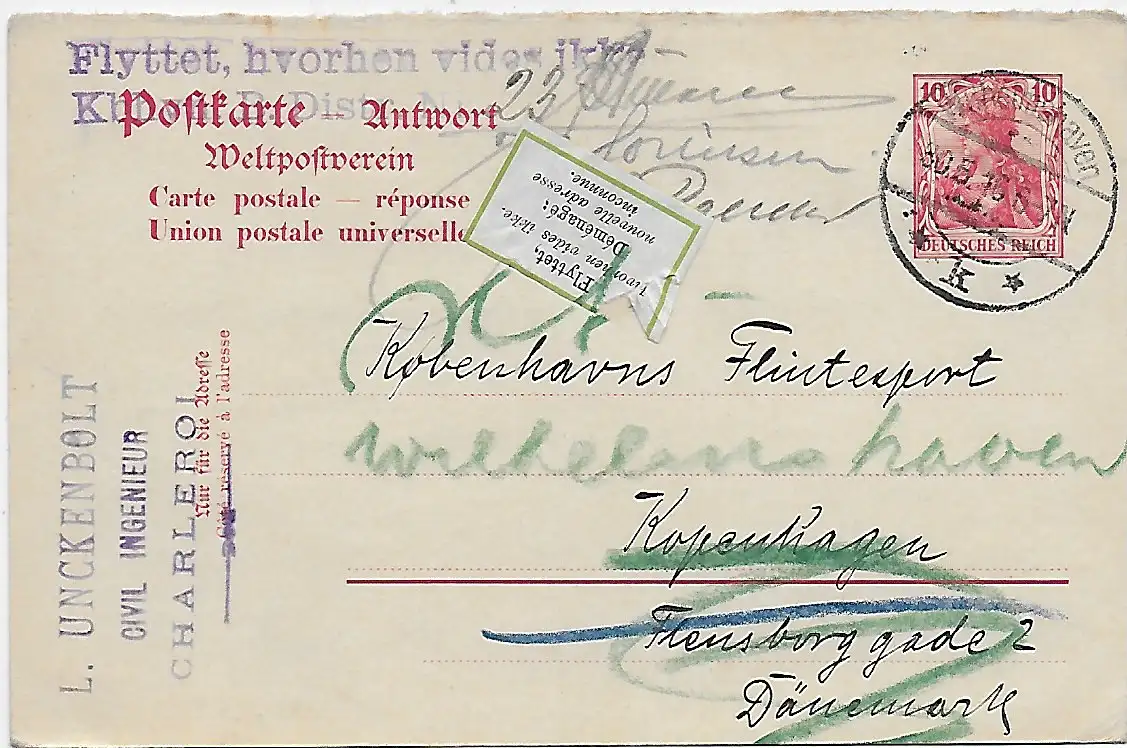 Flyttet, hvorhen vides ikke
Kbhvn. B. Distr. N 23
Postkarte — Antwort
Weltpostverein
Carte postale — réponse
Union postale universelle
Sörensen
10 10
DEUTSCHES REICH
30.8.13
K
Flyttet,
hvorhen vides ikke.
Déménagé:
nouvelle adresse
inconnue.
Københavns Flintesport
Wilhelmshaven
Kopenhagen
Flensborggade 2
Dänemark
L. UNCKENBOLT
CIVIL INGENIEUR
CHARLEROI
Nur für die Adresse
Côté réservé à l'adresse